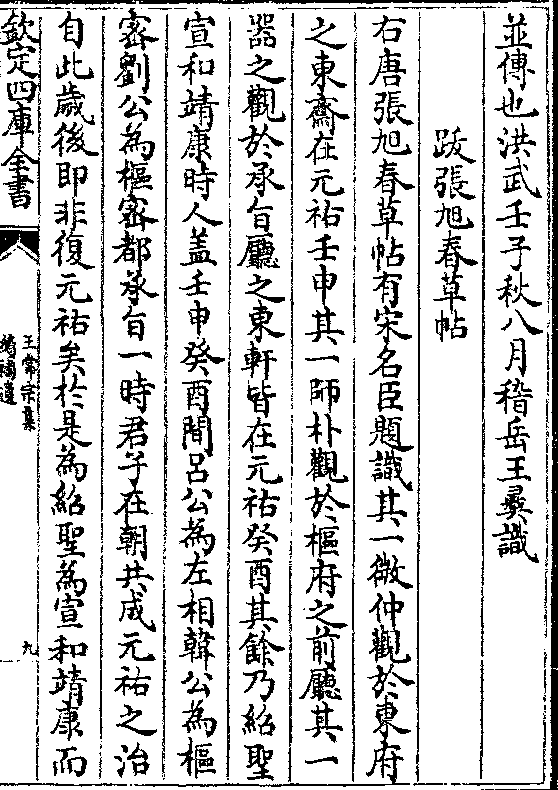 並傳也洪武壬子秋八月稽岳王彝識
跋張旭春草帖
右唐張旭春草帖有宋名臣題識其一微仲觀於東府
之東齋在元祐壬申其一師朴觀於樞府之前廳其一
器之觀於承旨廳之東軒皆在元祐癸酉其餘乃紹聖
宣和靖康時人蓋壬申癸酉間呂公為左相韓公為樞
密劉公為樞密都承旨一時君子在朝共成元祐之治
自此歲後即非復元祐矣於是為紹聖為宣和靖康而
欽定四庫全書
王常宗集
續補遺
九